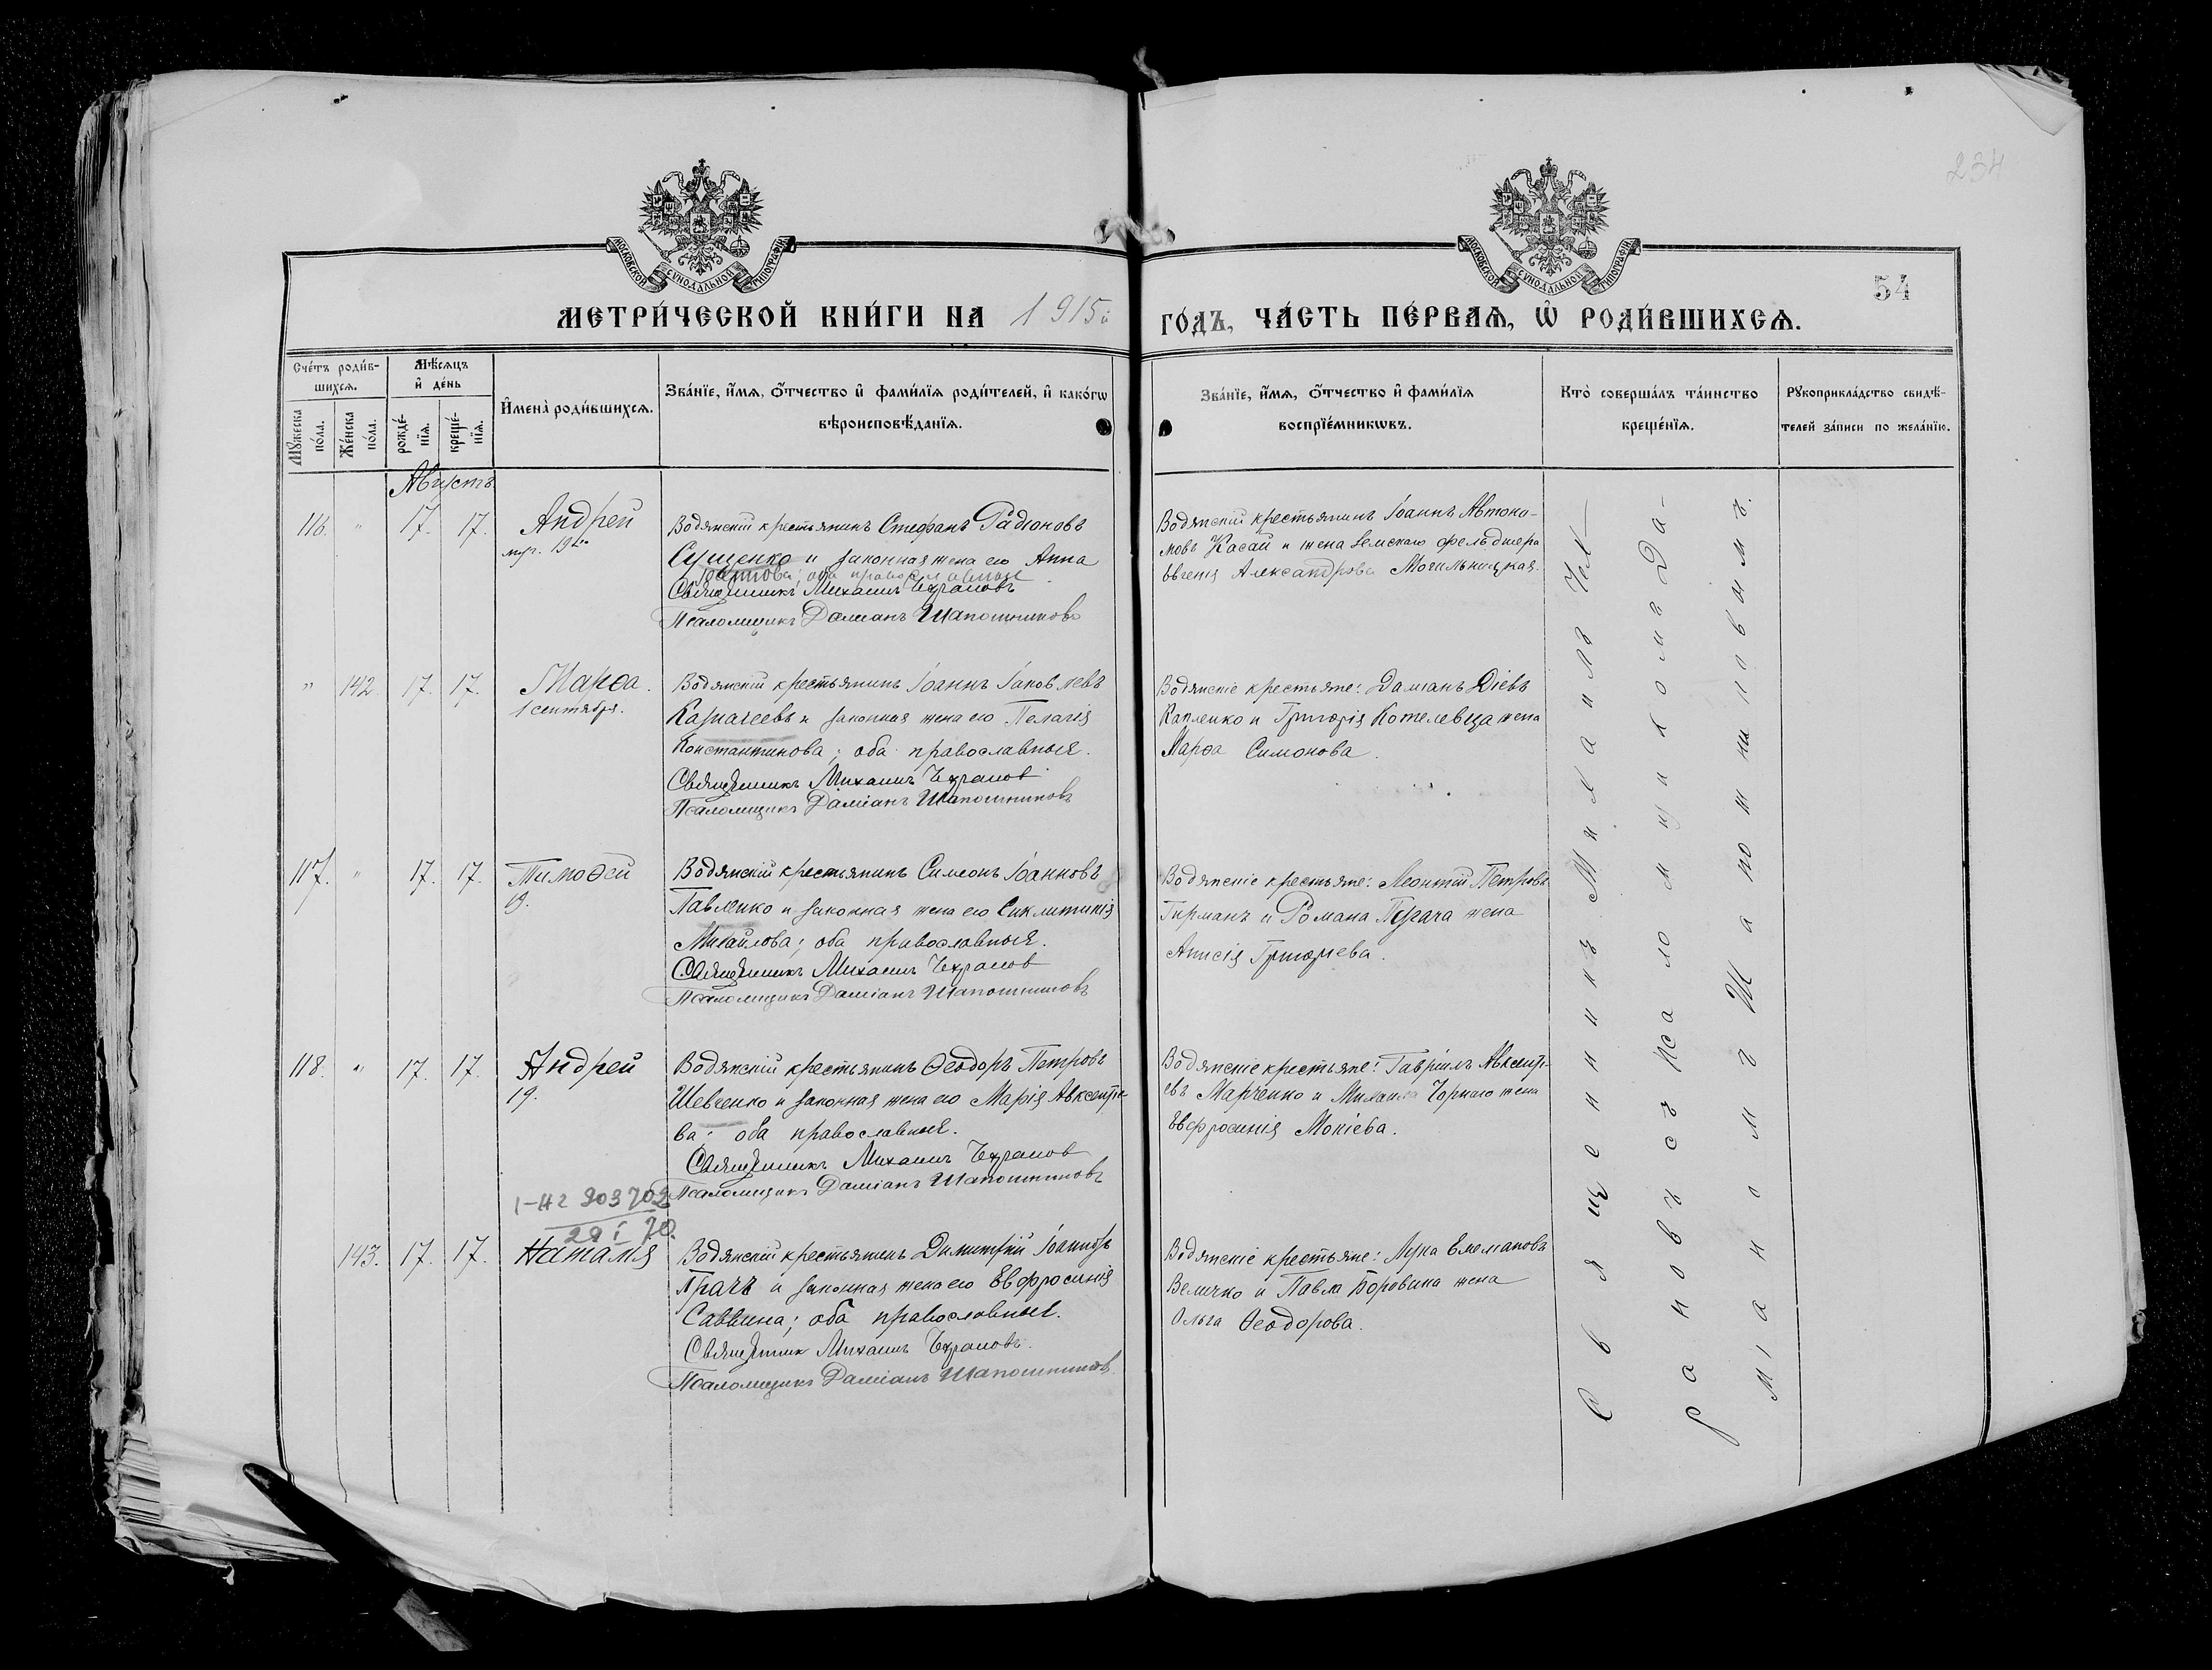 234
МОСКОВСКОЙ СѴНОДАЛЬНОЙ ТИПОГРАФІИ
МОСКОВСКОЙ СѴНОДАЛЬНОЙ ТИПОГРАФІИ
54
МЕТРИ́ЧЕСКОЙ КНИ́ГИ НА 1915й ГО́ДЪ, ЧА́СТЬ ПЕ́РВАѦ, Ѡ РОДИ́ВШИХСѦ.
Сче́тъ роди́вшихсѧ.
Мѣ́сѧцъ и҆ де́нь
Мꙋ́жеска по́ла.
Же́нска по́ла.
рожде́нїѧ.
креще́нїѧ.
И҆мена̀ роди́вшихсѧ.
Зва́нїе, и҆́мѧ, ѻ҆́тчество и҆ фами́лїѧ роди́телей, и҆ како́гѡ
вѣроисповѣ́данїѧ.
Зва́нїе, и҆́мѧ, ѻ҆́тчество и҆ фами́лїѧ
воспрїе́мникѡвъ.
Кто̀ соверша́лъ та́инство
креще́нїѧ.
Рꙋкоприкла́дство свидѣ́-
телей за́писи по жела́нїю.
Августъ
116. " 17. 17. Андрей
муч. 19го
Водянскій крестьянинъ Стефанъ Радіоновъ
Сущенко и законная жена его Анна
Іоаннова; оба православные
Священникъ Михаилъ Чехрановъ
Псаломщикъ Даміанъ Шапошниковъ
Водянскій крестьянинъ Іоаннъ Автоно-
мовъ Касай и жена земскаго фельдшера
Евгенія Александрова Могильницкая.
" 142. 17. 17. Марѳа.
1 сентября.
Водянскій крестьянинъ Іоаннъ Іаковлевъ
Казначеевъ и законная жена его Пелагія
Константинова; оба православные.
Священникъ Михаилъ Чехрановъ
Псаломщикъ Даміанъ Шапошниковъ
Водянскіе крестьяне: Даміанъ Діевъ
Капленко и Григорія Котелевца жена
Марѳа Симонова.
117. " 17. 17. Тимоѳей
19.
Водянскій крестьянинъ Симеонъ Іоанновъ
Павленко и законная жена его Синклитикія
Михайлова; оба православные.
Священникъ Михаилъ Чехрановъ
Псаломщикъ Даміанъ Шапошниковъ
Водянскіе крестьяне: Леонтій Петровъ
Гирманъ и Романа Пугача жена
Анисія Григорьева.
118. " 17. 17. Андрей
19.
Водянскій крестьянинъ Ѳеодоръ Петровъ
Шевченко и законная жена его Марія Авксентіе-
ва; оба православные.
Священникъ Михаилъ Чехрановъ
Псаломщикъ Даміанъ Шапошниковъ
Водянскіе крестьяне: Гавріилъ Авксенті-
евъ Марченко и Михаила Чорнаго жена
Евфросинія Мокіева.
903702
29 I 70.
143. 17. 17. Наталія
Водянскій крестьянинъ Димитрій Іоанновъ
Прачъ и законная жена его Евфросинія
Саввина; оба православные.
Священникъ Михаилъ Чехрановъ.
Псаломщикъ Даміанъ Шапошниковъ
Водянскіе крестьяне: Лука Емеліановъ
Величко и Павла Боровика жена
Ольга Ѳеодорова.
Священникъ Михаилъ Чех-
рановъ съ псаломщикомъ Да-
міаномъ Шапошниковымъ.